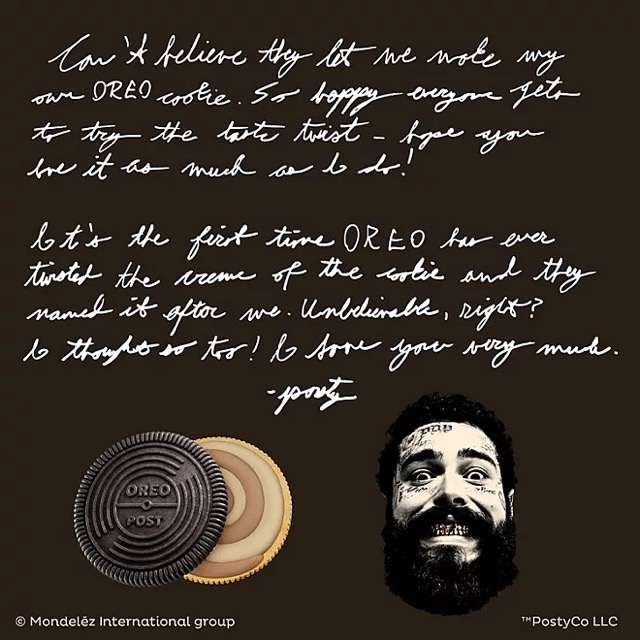 Can't believe they let me make my
own OREO cookie. So happy everyone gets
to try the taste twist - hope you
love it as much as I do!
It's the first time OREO has ever
twisted the creme of the cookie and they
named it after me. Unbelievable, right?
I thought so too! I love you very much.
-posty
OREO
POST
© Mondelēz International group
™PostyCo LLC